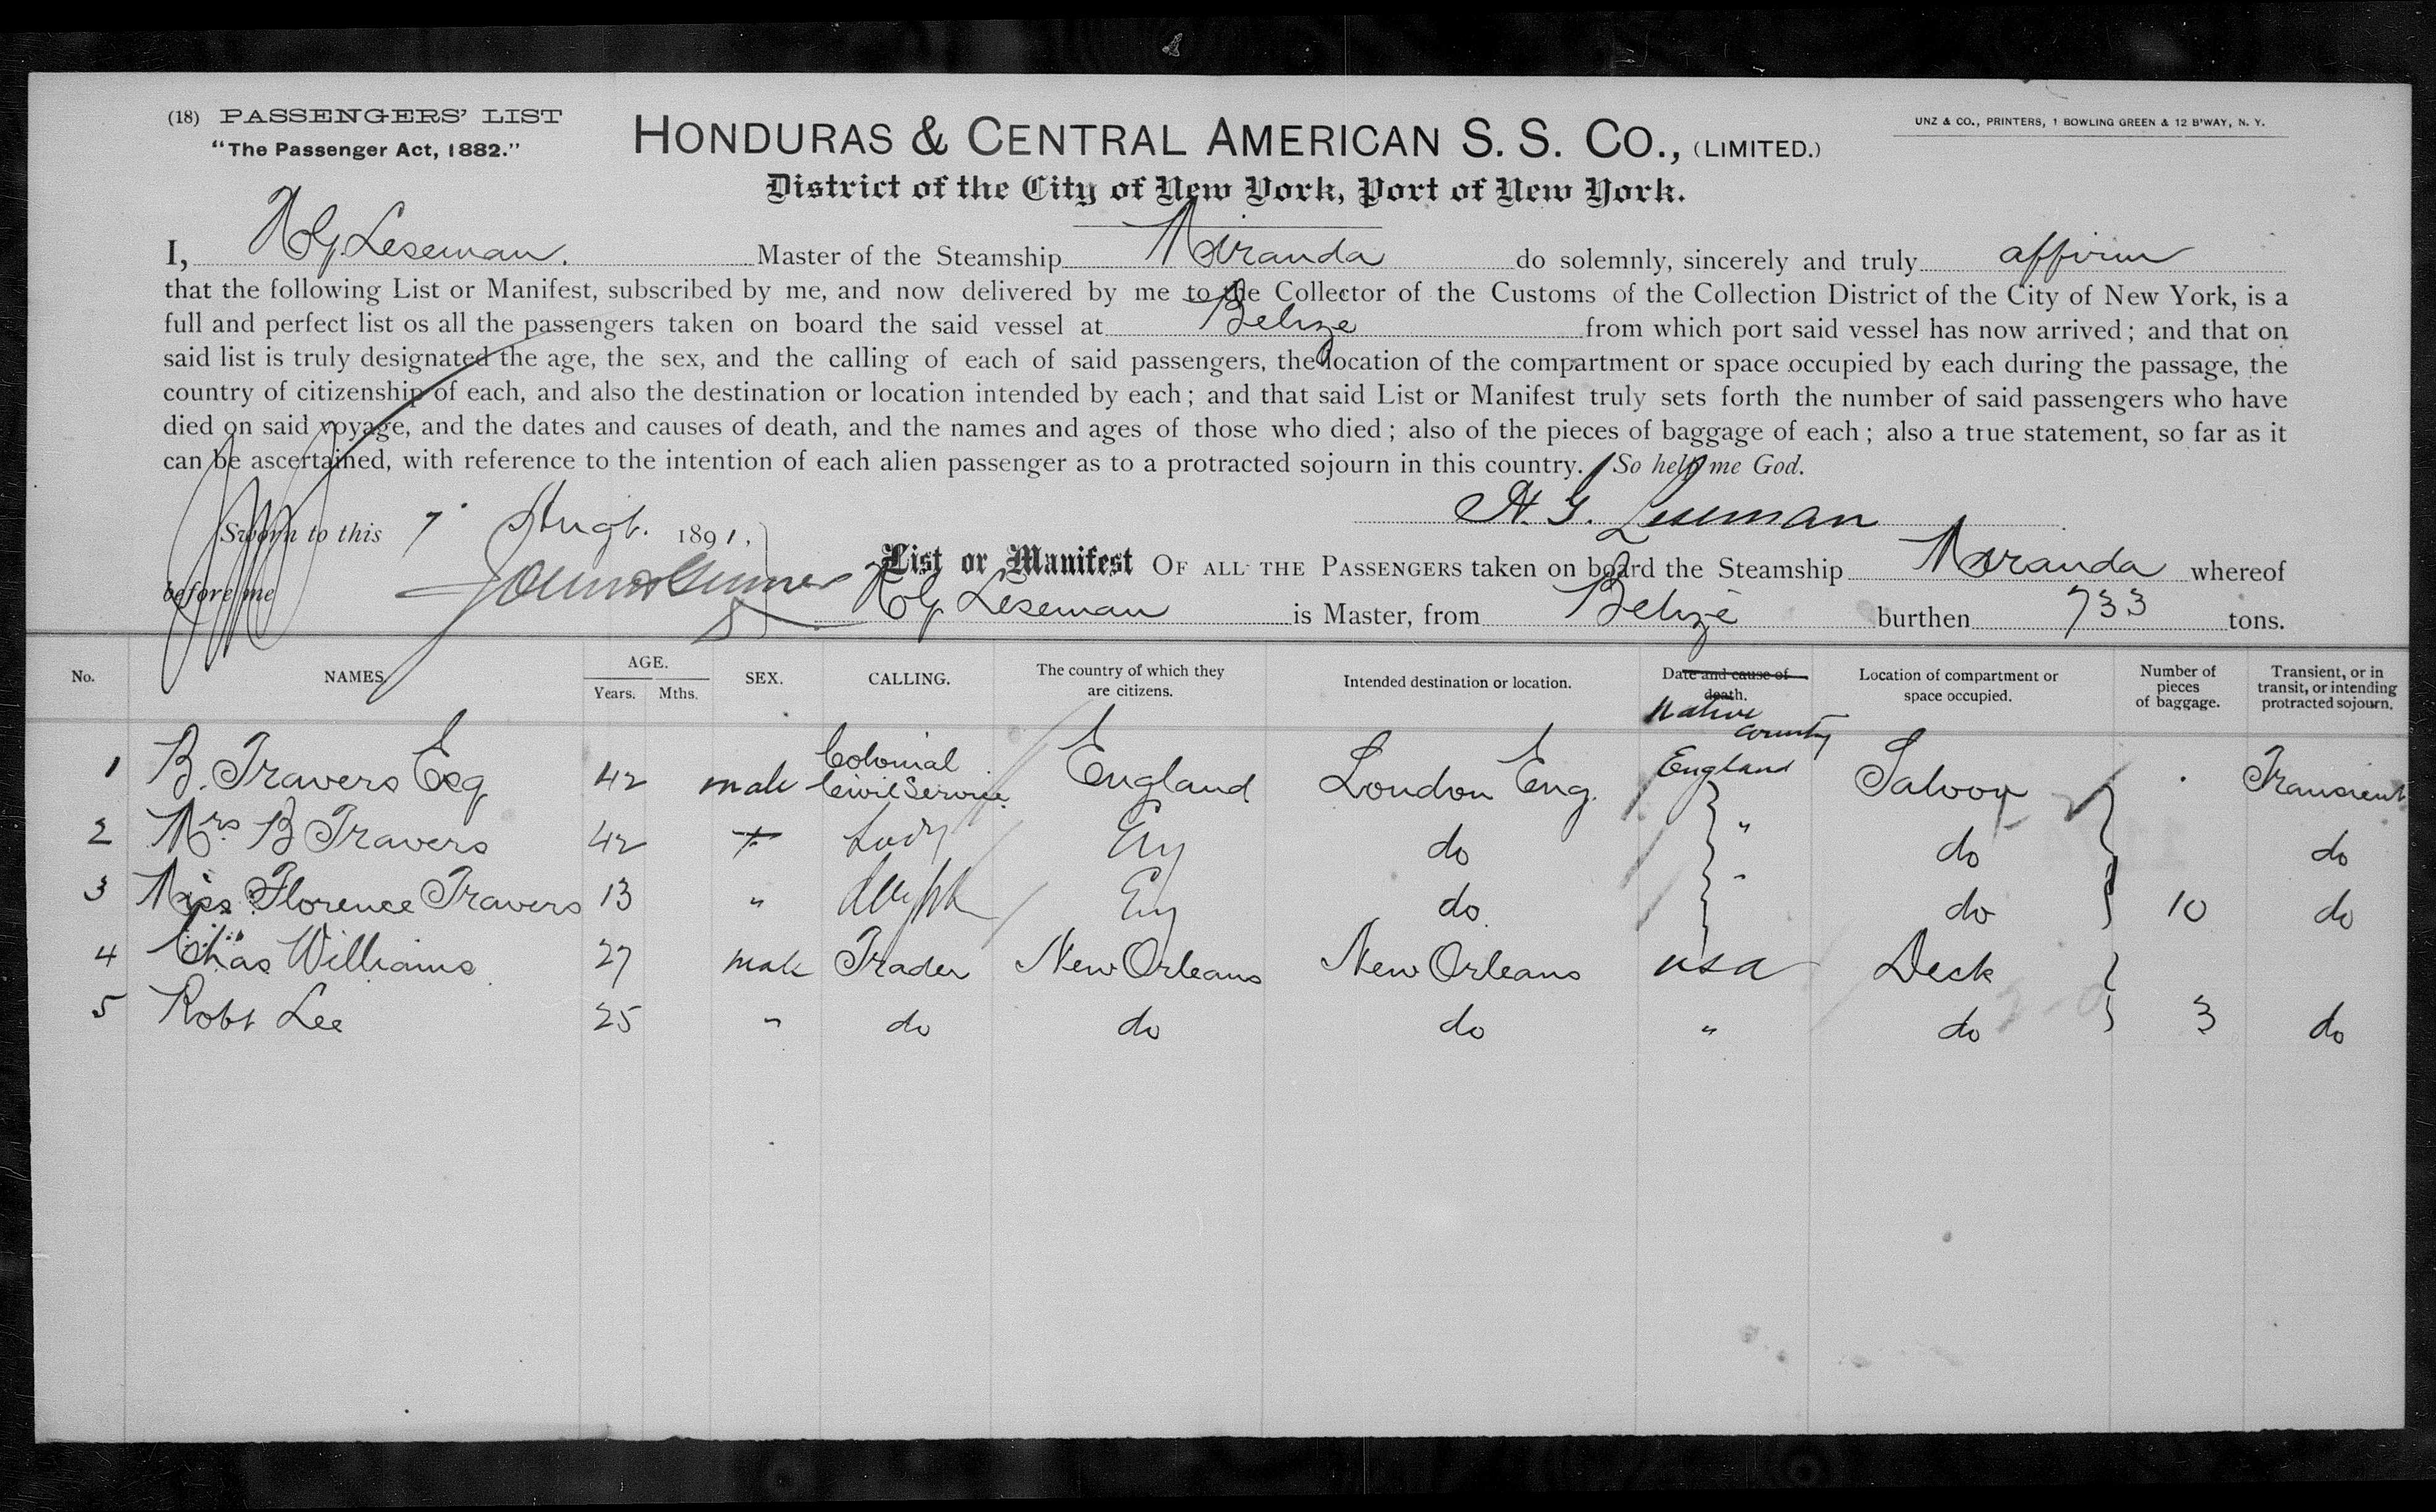 (18) PASSENGERS' LIST
"The Passenger Act, 1882."
HONDURAS & CENTRAL AMERICAN S. S. CO., (LIMITED.)
UNZ & CO., PRINTERS, 1 BOWLING GREEN & 12 B'WAY, N. Y.
District of the City of New York, Port of New York.
I, H G Leseman. Master of the Steamship Miranda do solemnly, sincerely and truly affirm
that the following List or Manifest, subscribed by me, and now delivered by me to the Collector of the Customs of the Collection District of the City of New York, is a
full and perfect list os all the passengers taken on board the said vessel at Belize from which port said vessel has now arrived; and that on
said list is truly designated the age, the sex, and the calling of each of said passengers, the location of the compartment or space occupied by each during the passage, the
country of citizenship of each, and also the destination or location intended by each; and that said List or Manifest truly sets forth the number of said passengers who have
died on said voyage, and the dates and causes of death, and the names and ages of those who died; also of the pieces of baggage of each; also a true statement, so far as it
can be ascertained, with reference to the intention of each alien passenger as to a protracted sojourn in this country. So help me God.
H. G. Leseman
Sworn to this 7 Augt. 1891,
before me
List or Manifest OF ALL THE PASSENGERS taken on board the Steamship Miranda whereof
H G Leseman is Master, from Belize burthen 733 tons.
No. NAMES. AGE. Years. Mths. SEX. CALLING. The country of which they are citizens. Intended destination or location. Date and cause of death. Native country Location of compartment or space occupied. Number of pieces of baggage. Transient, or in transit, or intending protracted sojourn.
1 B. Travers Esq 42 male Colonial Civil Service England London Eng. England Saloon Transient
2 Mrs B Travers 42 f Lady Eng do " do do
3 Miss Florence Travers 13 " Eng do " do 10 do
4 Chas Williams 27 male Trader New Orleans New Orleans USA Deck
5 Robt Lee 25 " do do do " do 3 do